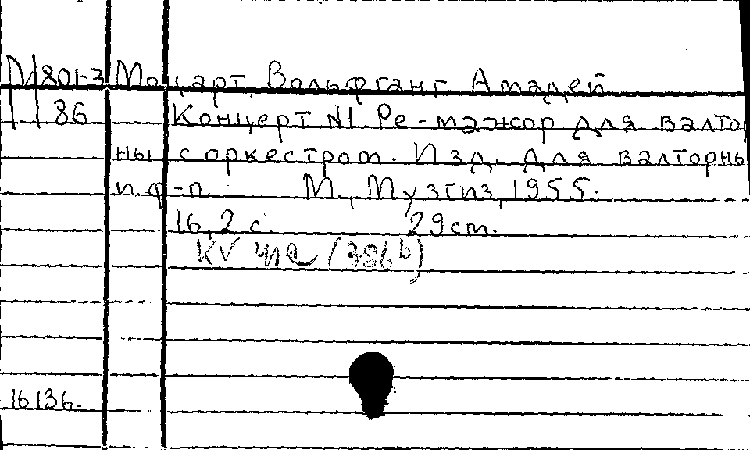 М801-3 Моцарт, Вольфганг Амадей
86 Концерт №1 Ре-мажор для валтор
ны с оркестром. Изд. для валторны
и ф-п. М., Музгиз, 1955.
16, 2 с. 29 cm.
KV 412 (386b)
16136.